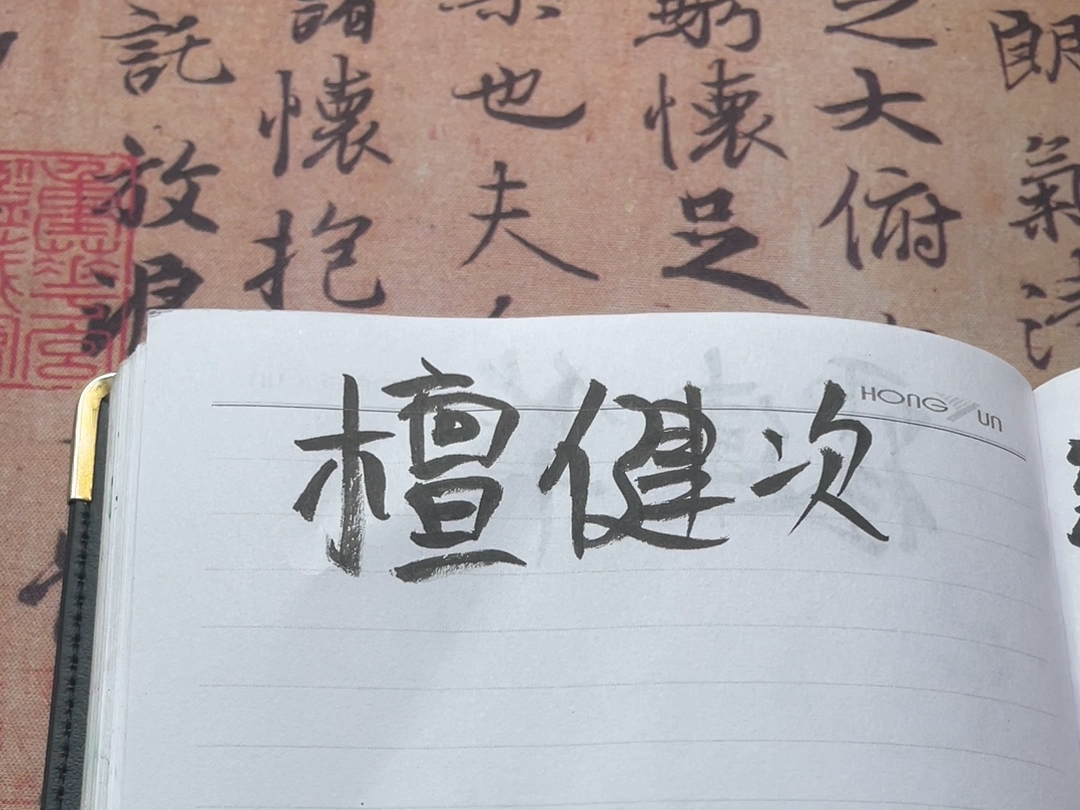 朗氣清
之大俯
騁懷足
也夫
諸懷抱
託放浪
HONG YUN
檀健次